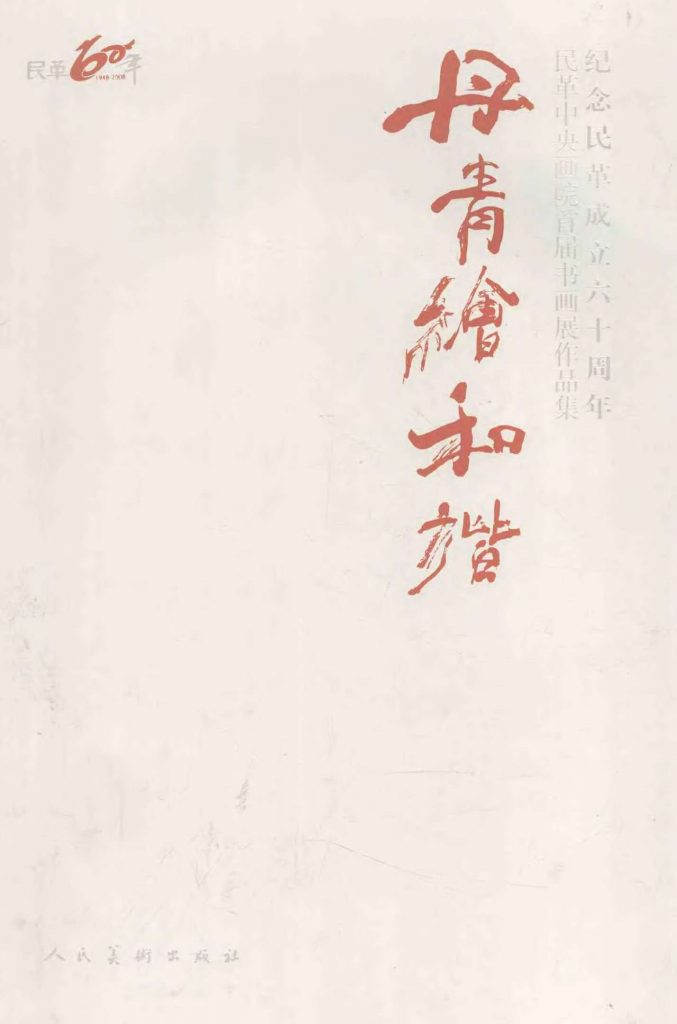 民革60年
1948-2008
纪念民革成立六十周年
民革中央画院首届书画展作品集
丹青繪和諧
人民美術出版社